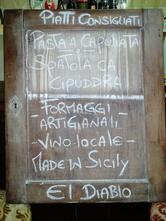 PIATTI CONSIGLIATI
PASTA A CAPULIATA
SPATOLA CA
CIPUDDRA
- FORMAGGI
ARTIGIANALI -
- VINO LOCALE -
MADE IN SICILY
El DIABLO